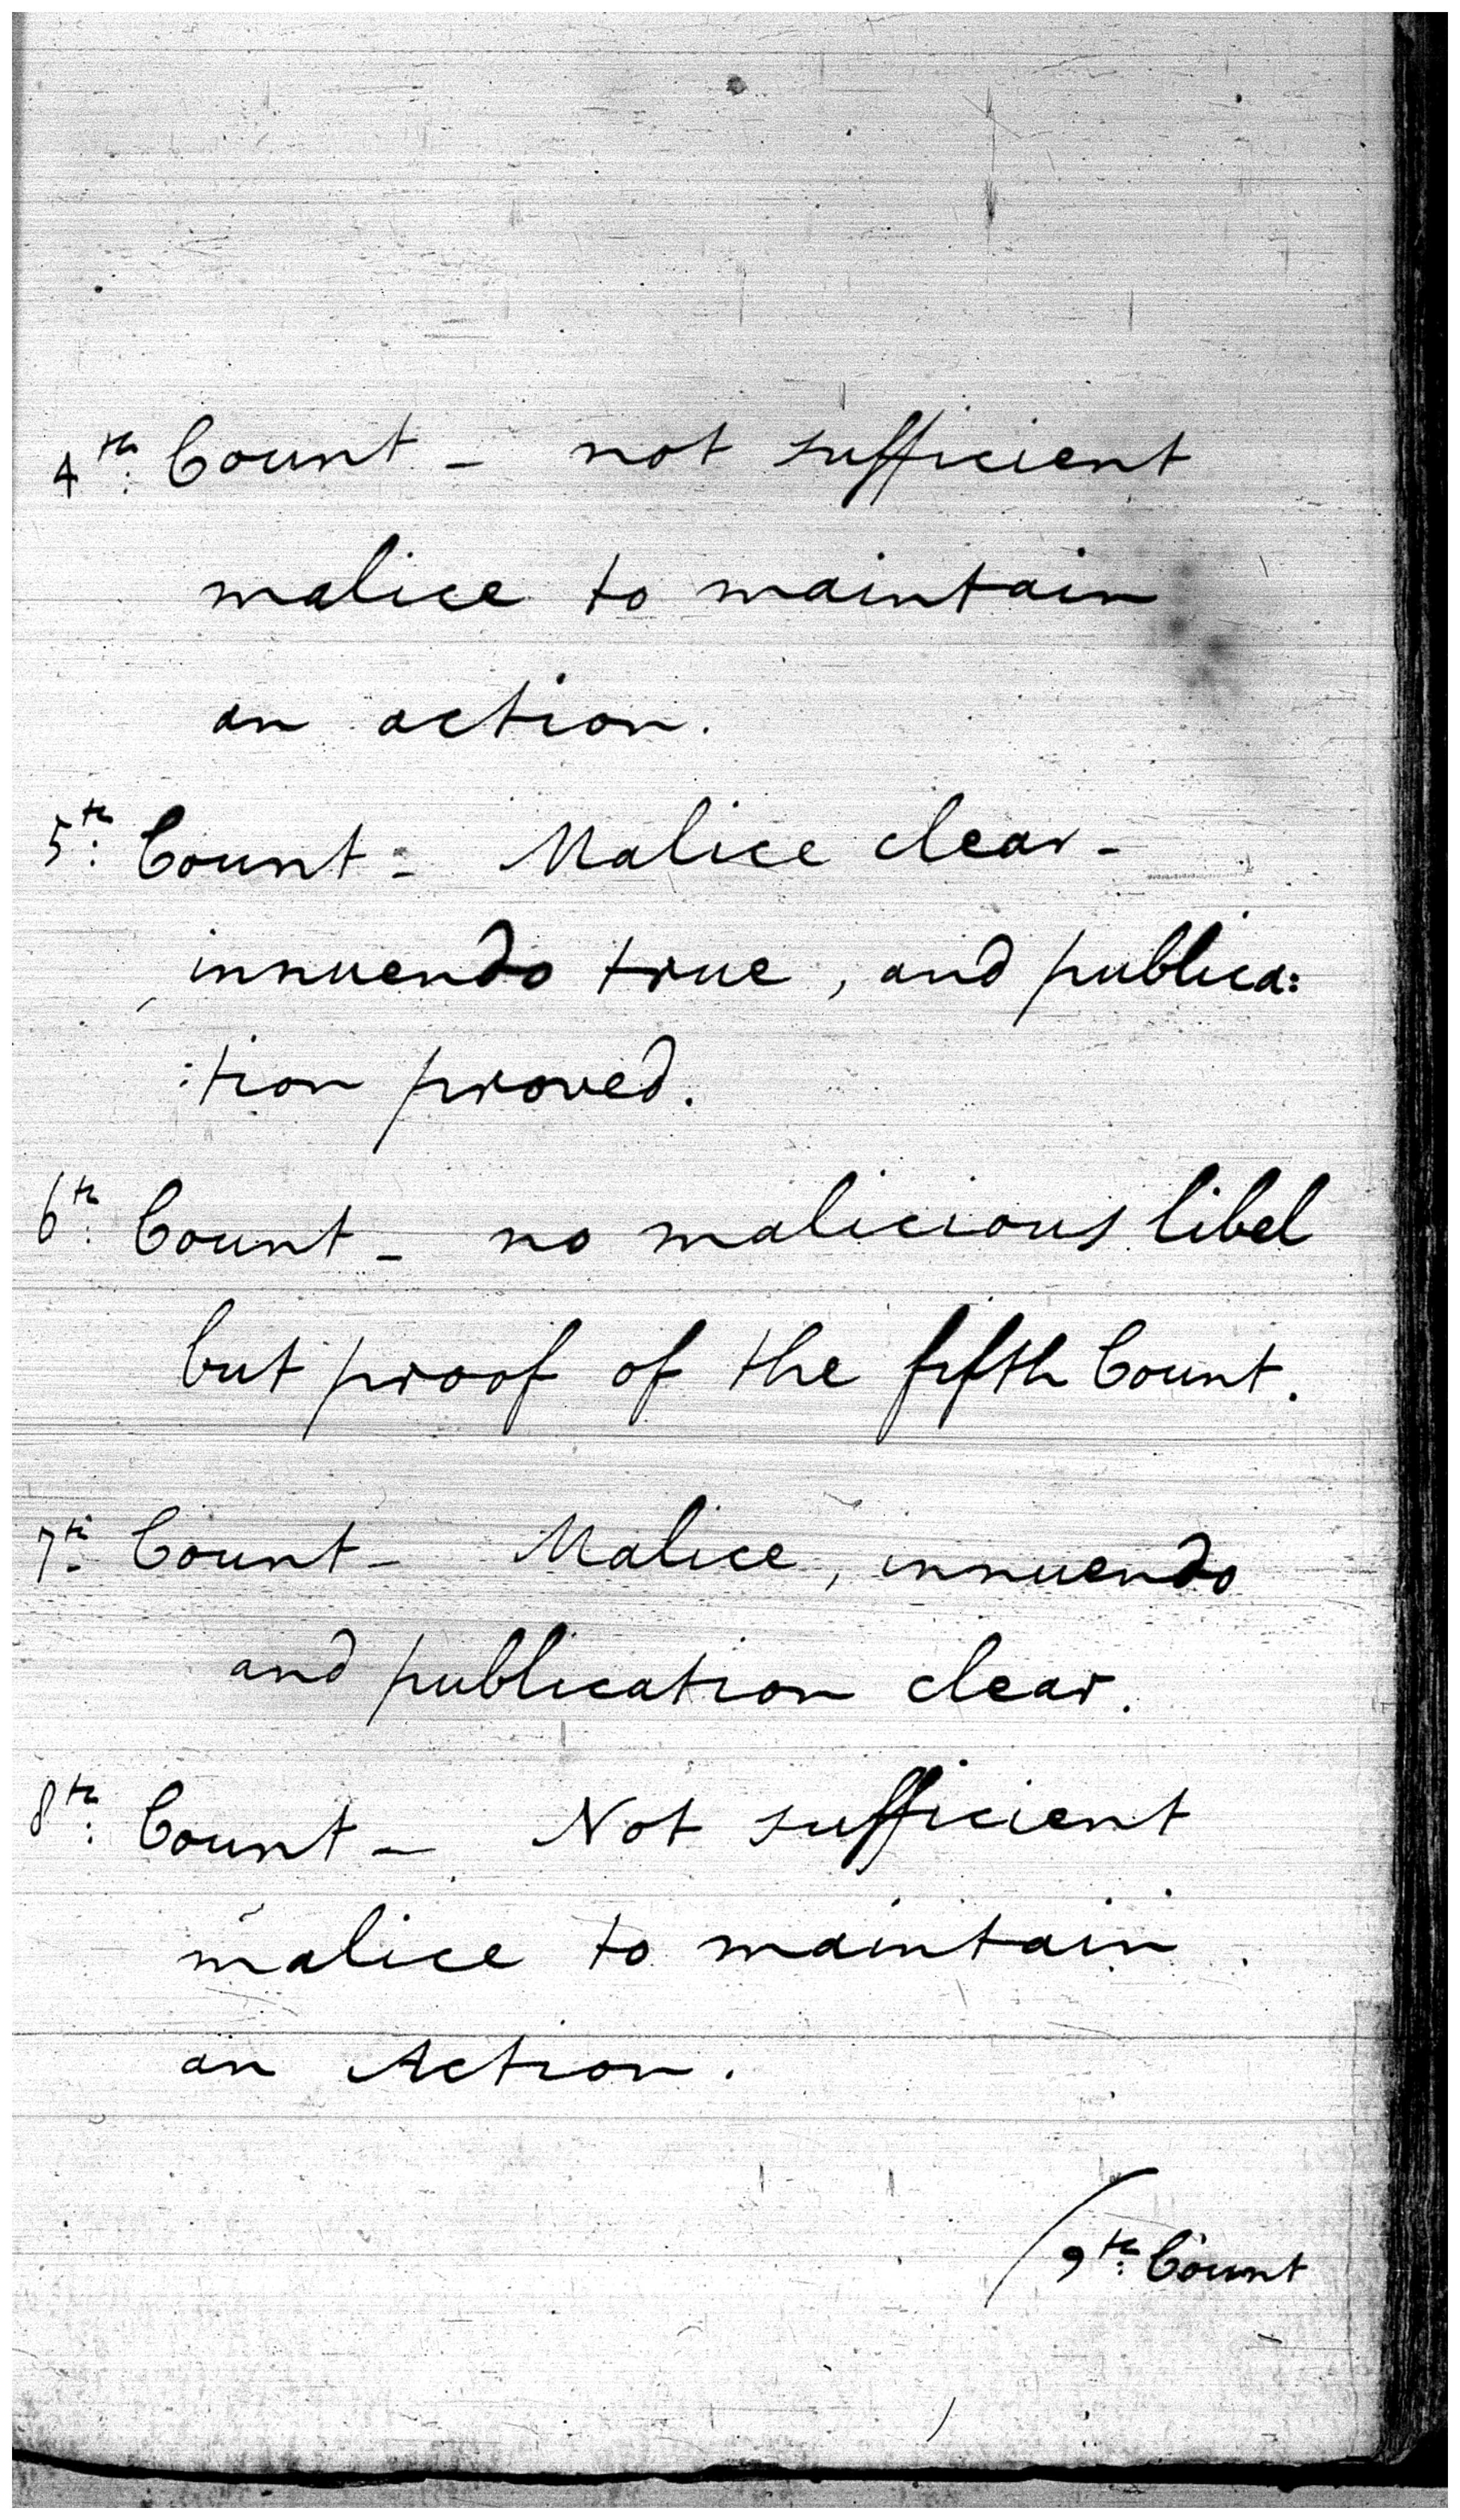 4th: Count - not sufficient
malice to maintain
an action.
5th: Count - Malice clear -
innuendo true, and publica:
:tion proved.
6th: Count - no malicious libel
but proof of the fifth Count.
7th: Count - Malice, innuendo
and publication clear.
8th: Count - Not sufficient
malice to maintain
an Action.
/9th: Count